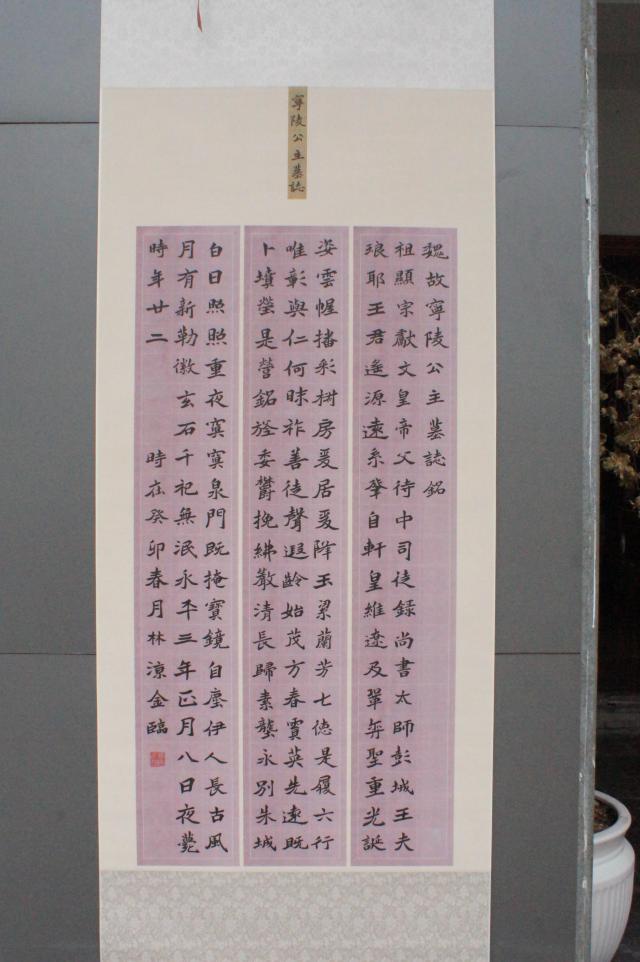 寧陵公主墓誌
魏故寧陵公主墓誌銘
祖顯宗獻文皇帝父侍中司徒録尚書太師彭城王夫
琅耶王君遙源遠系肇自軒皇維遼及鞏弈聖重光誕
姿雲幄播彩椒房爰居爰降玉梁蘭芳七德是履六行
唯彰與仁何昧祚善徒聲遐齡始茂方春霣英先遠既
卜墳塋是營銘旌委欝挽紼散清長歸素壟永別朱城
白日照照重夜寞寞泉門既掩寶鏡自塵伊人長古風
月有新勒徽玄石千祀無泯永平三年正月八日夜薨
時年廿二 時在癸卯春月林涼金臨